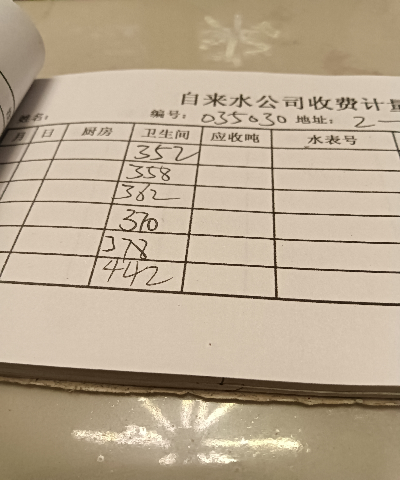 自来水公司收费计量
姓名: 编号: 035030 地址: 2一
月 日 厨房 卫生间 应收吨 水表号
352
358
362
370
378
442